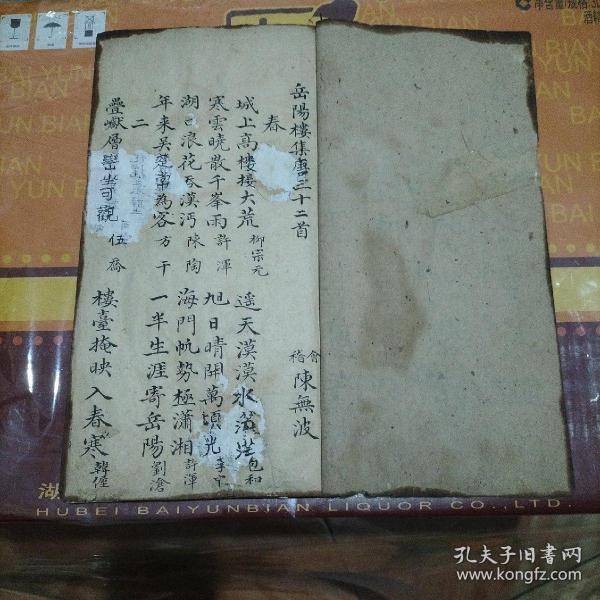 岳陽樓集唐三十二首
會稽 陳無波
春
城上高樓接大荒 柳宗元 遥天漠漠水茫茫 包和
寒雲曉散千峯雨 許渾 旭日晴開萬頃光 李中
湖 浪花吞漢沔 陳陶 海門帆勢極瀟湘 許渾
年來吴楚常為客 方干 一半生涯寄岳陽 劉滄
二
疊巘層巒坐可觀 伍喬 樓臺掩映入春寒 韓偓
BAI YUN BIAN
HUBEI BAIYUNBIAN LIQUOR CO.,LTD.
孔夫子旧书网
www.kongfz.com